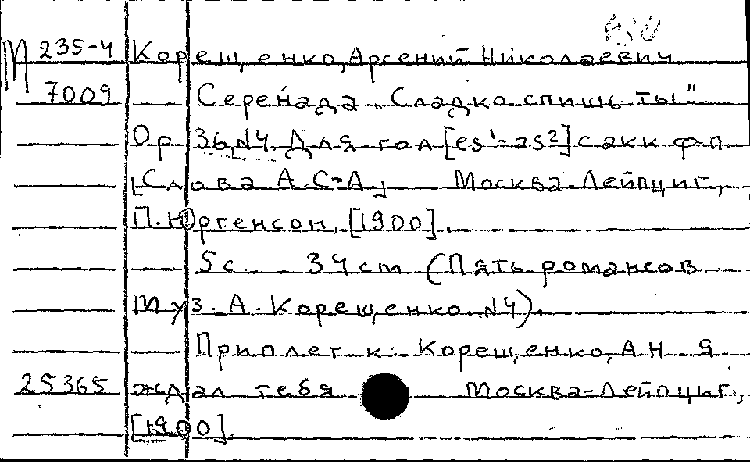 М 235-4 Корещенко, Арсений Николаевич
7009 Серенада „Сладко спишь ты"
Op 36, N4. Для гол [es¹-as²] с акк ф-п
[Слова А. С-А] Москва-Лейпциг,
П. Юргенсон, [1900].
5 с. 34 cm (Пять романсов
Муз. А. Корещенко N4).
Приплет к: Корещенко, А Н. Я
25365 ждал тебя Москва-Лейпциг,
[1900].